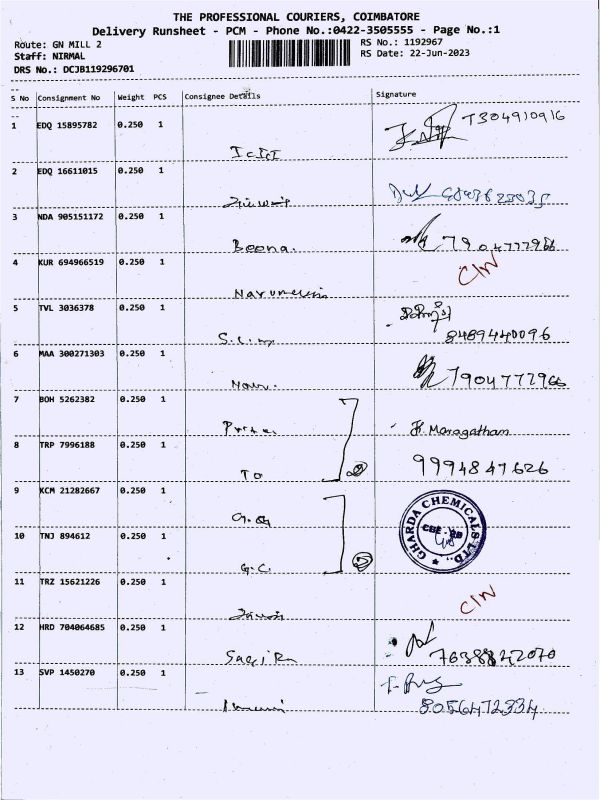 THE PROFESSIONAL COURIERS, COIMBATORE
Delivery Runsheet - PCM - Phone No.:0422-3505555 - Page No.:1
Route: GN MILL 2
RS No.: 1192967
Staff: NIRMAL
RS Date: 22-Jun-2023
DRS No.: DCJB119296701
S No Consignment No Weight PCS Consignee Details Signature
1 EDQ 15895782 0.250 1 7304910916
2 EDQ 16611015 0.250 1
3 NDA 905151172 0.250 1 Beena. 7904772966
4 KUR 694966519 0.250 1
5 TVL 3036378 0.250 1 8489440096
6 MAA 300271303 0.250 1 7904772966
7 BOH 5262382 0.250 1 Maragatham
8 TRP 7996188 0.250 1 To 9994847626
9 KCM 21282667 0.250 1 GHARDA CHEMICALS LTD.
10 TNJ 894612 0.250 1 G.C.
11 TRZ 15621226 0.250 1
12 HRD 704064685 0.250 1 7638842070
13 SVP 1450270 0.250 1 8056472334